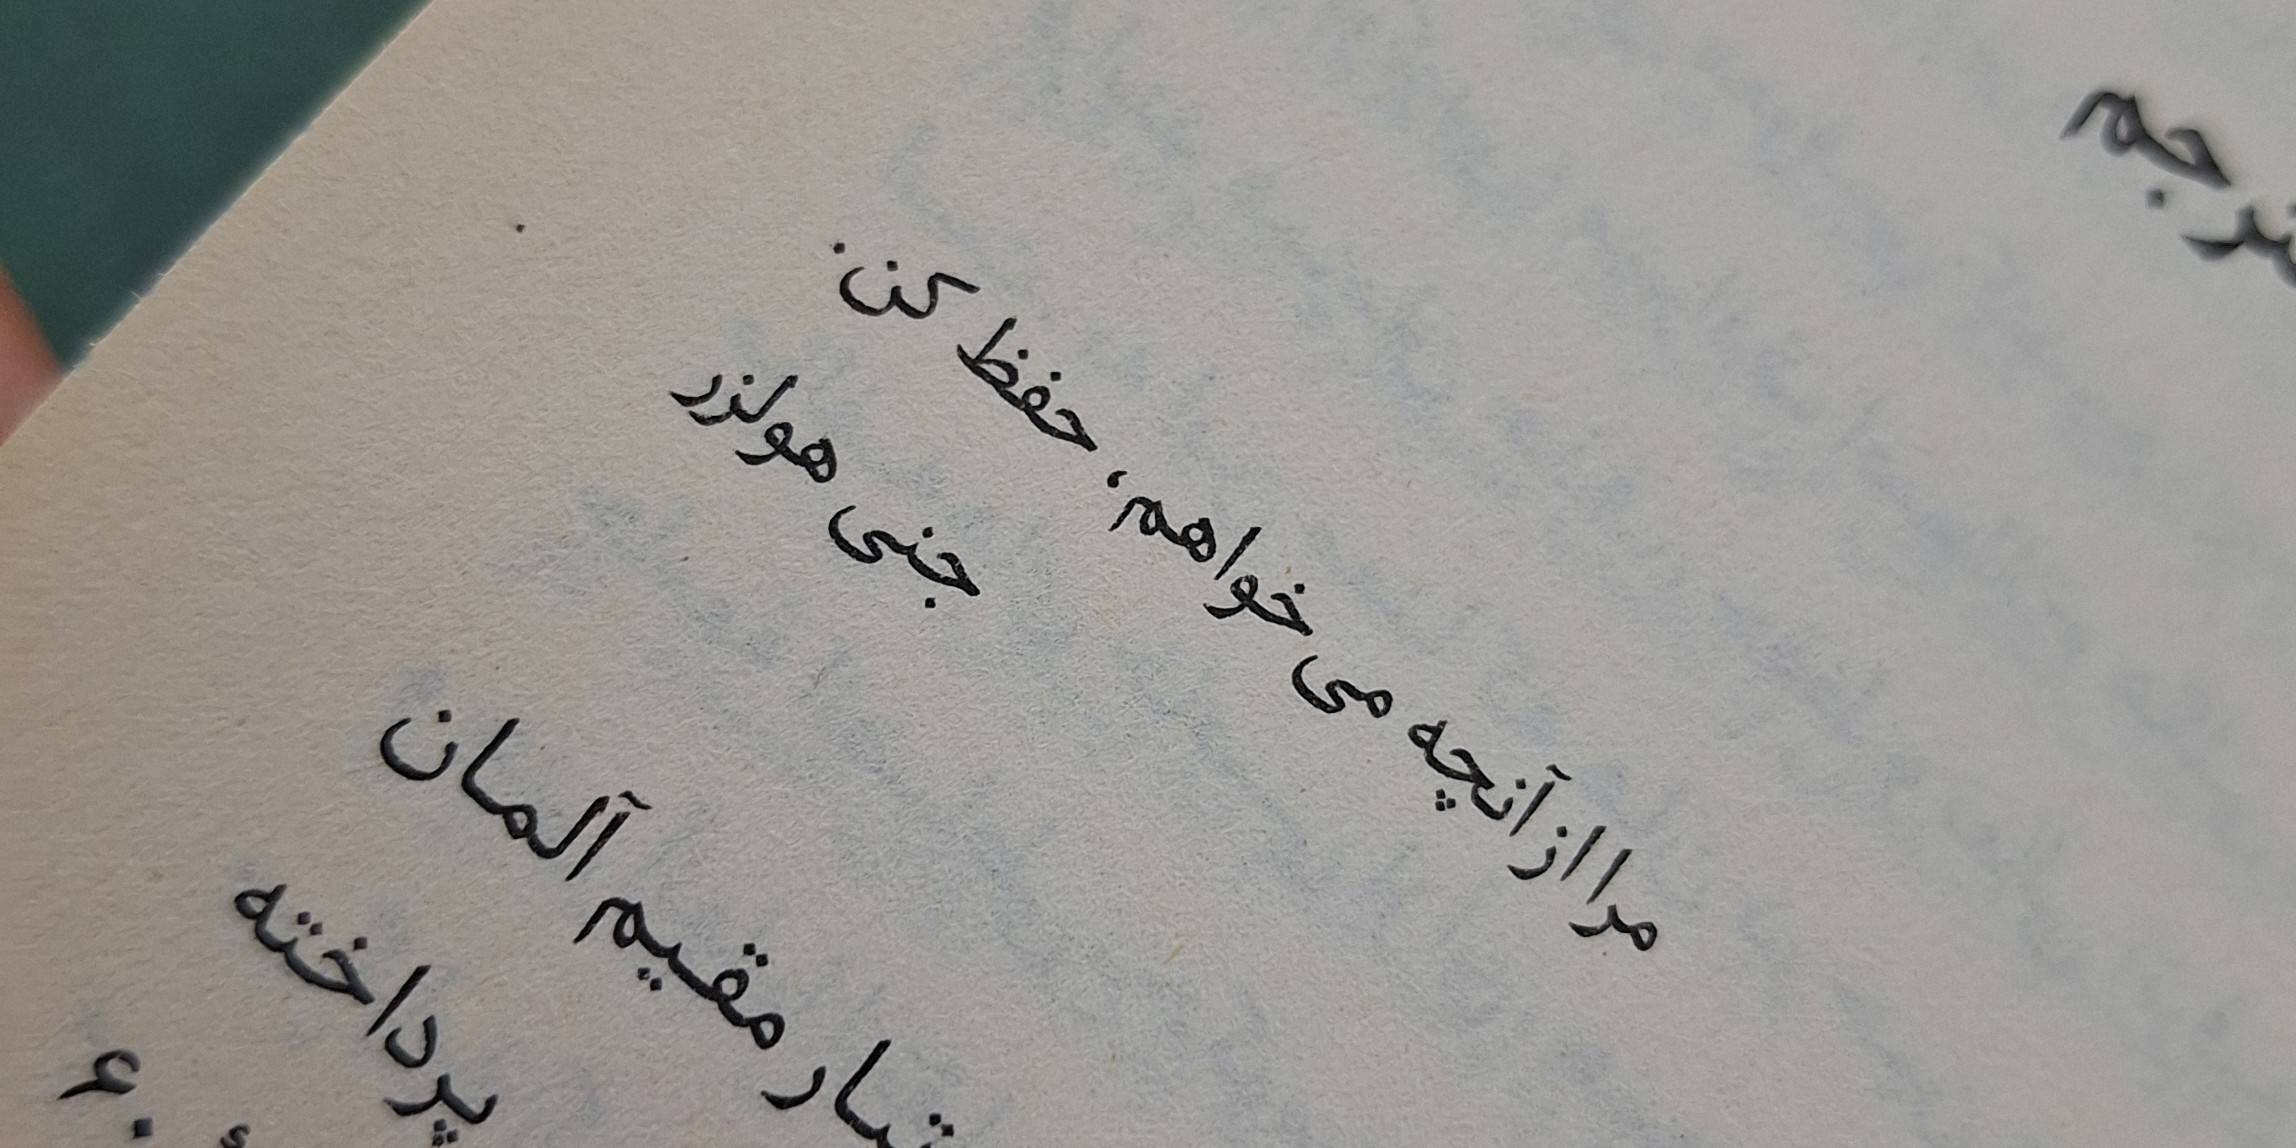 مرا از آنچه می خواهم، حفظ کن.
جنی هولزر
مقیم آلمان
پرداخته